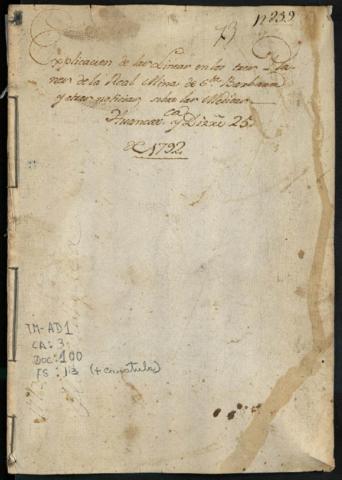 73 n 232
Explicacion de las Lineas en los tres Pla-
nes de la Real Mina de Sta. Barbara
y otras noticias, sobre las Medidas
Huancaca. y Dizre 25.
de 1792
TM-AD1
CA: 3
DOC: 100
FS: 13 (+ carátula)